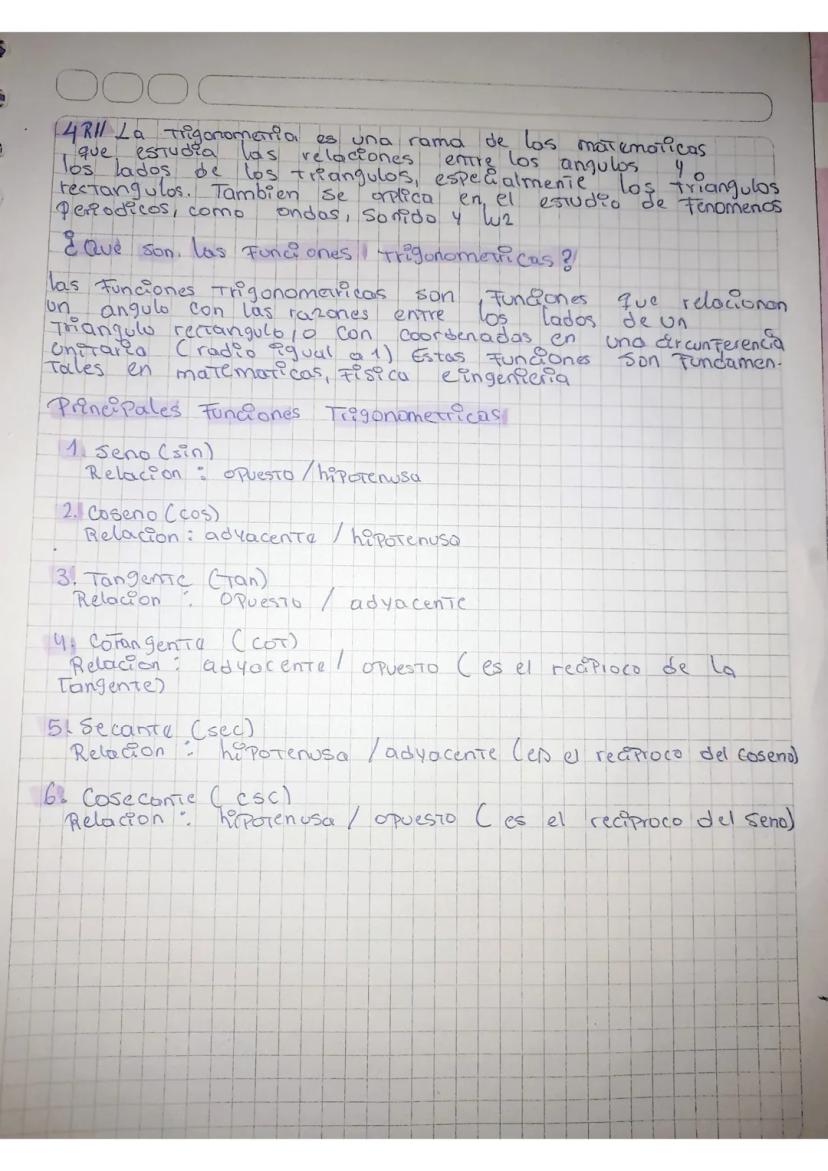 4R// La Trigonometria es una rama de las matematicas
que estudia las relaciones entre los angulos y o
los lados de los triangulos, especialmente los triangulos
rectangulos. Tambien se aplica en el estudio de Fenomenos
Periodicos, como ondas, sonido y luz
¿Qué son las Funciones trigonometricas?
las Funciones Trigonometricas son Funciones que relacionan
un angulo con las razones entre los lados de un
Triangulo rectangulo, o con coordenadas en una circunferencia
Unitaria (radio igual a 1) Estas Funciones son Fundamen-
Tales en matematicas, Fisica e ingenieria
Principales Funciones Trigonometricas
1. seno (sin)
Relacion : opuesto / hipotenusa
2. Coseno (cos)
Relacion : adyacente / hipotenusa
3. Tangente (Tan)
Relacion : Opuesto / adyacente
4. Cotangente (cot)
Relacion : adyacente / opuesto (es el recipioco de la
Tangente)
5. Secante (sec)
Relacion : hipotenusa / adyacente (es el reciproco del coseno)
6. Cosecante (csc)
Relacion : hipotenusa / opuesto (es el reciproco del seno)